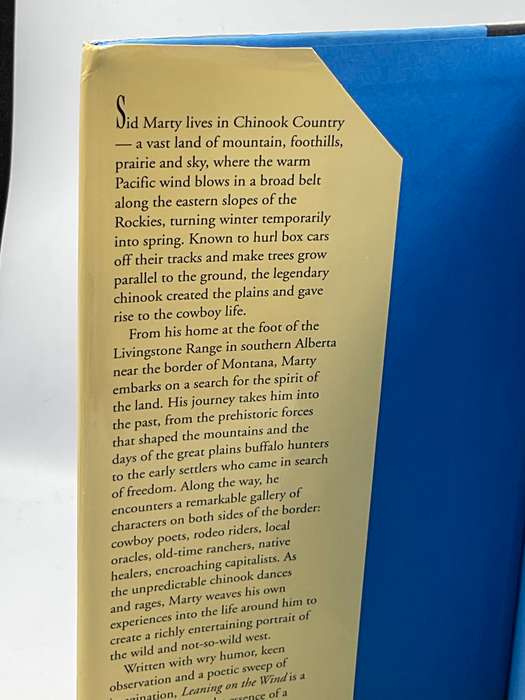 Sid Marty lives in Chinook Country
— a vast land of mountain, foothills,
prairie and sky, where the warm
Pacific wind blows in a broad belt
along the eastern slopes of the
Rockies, turning winter temporarily
into spring. Known to hurl box cars
off their tracks and make trees grow
parallel to the ground, the legendary
chinook created the plains and gave
rise to the cowboy life.
From his home at the foot of the
Livingstone Range in southern Alberta
near the border of Montana, Marty
embarks on a search for the spirit of
the land. His journey takes him into
the past, from the prehistoric forces
that shaped the mountains and the
days of the great plains buffalo hunters
to the early settlers who came in search
of freedom. Along the way, he
encounters a remarkable gallery of
characters on both sides of the border:
cowboy poets, rodeo riders, local
oracles, old-time ranchers, native
healers, encroaching capitalists. As
the unpredictable chinook dances
and rages, Marty weaves his own
experiences into the life around him to
create a richly entertaining portrait of
the wild and not-so-wild west.
Written with wry humor, keen
observation and a poetic sweep of
imagination, Leaning on the Wind is a
essence of a